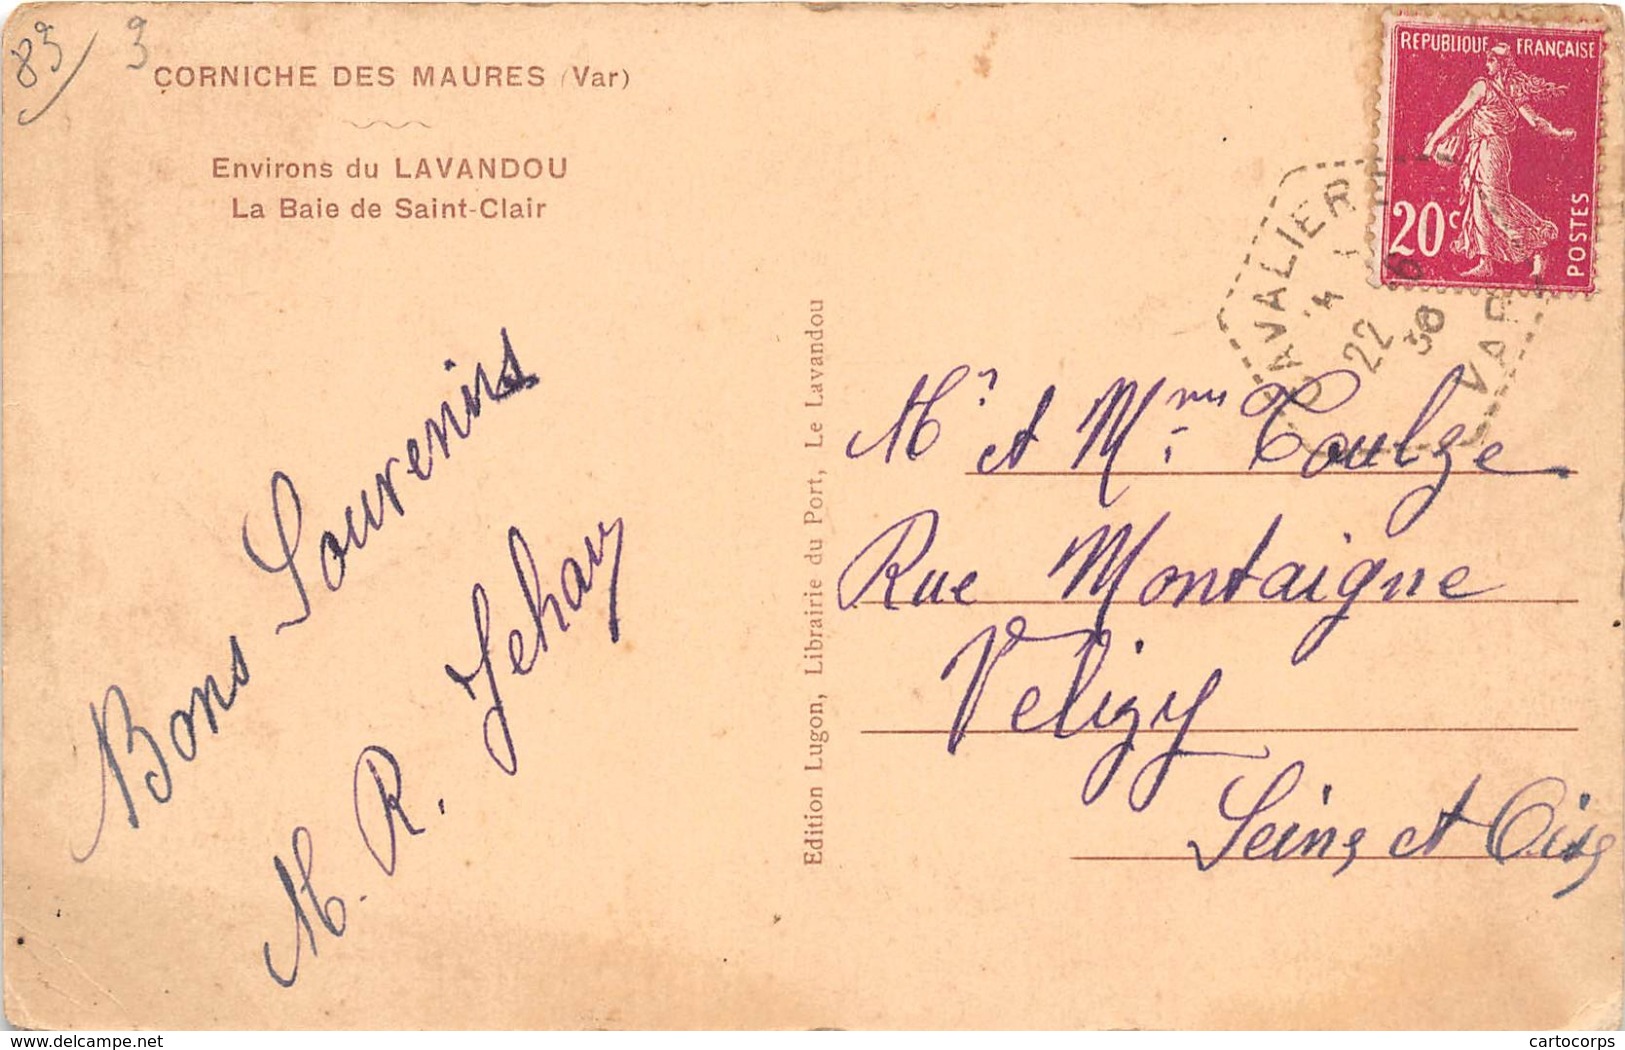 83
3
CORNICHE DES MAURES (Var)
Environs du LAVANDOU
La Baie de Saint-Clair
REPUBLIQUE FRANÇAISE
20c
POSTES
CAVALIERE
22 6
VAR
Bons Souvenirs
M. R. Jehan
Edition Lugon, Librairie du Port, Le Lavandou
Mr et Mme Toulze
Rue Montaigne
Velizy
Seine et Oise
delcampe.net
cartocorps